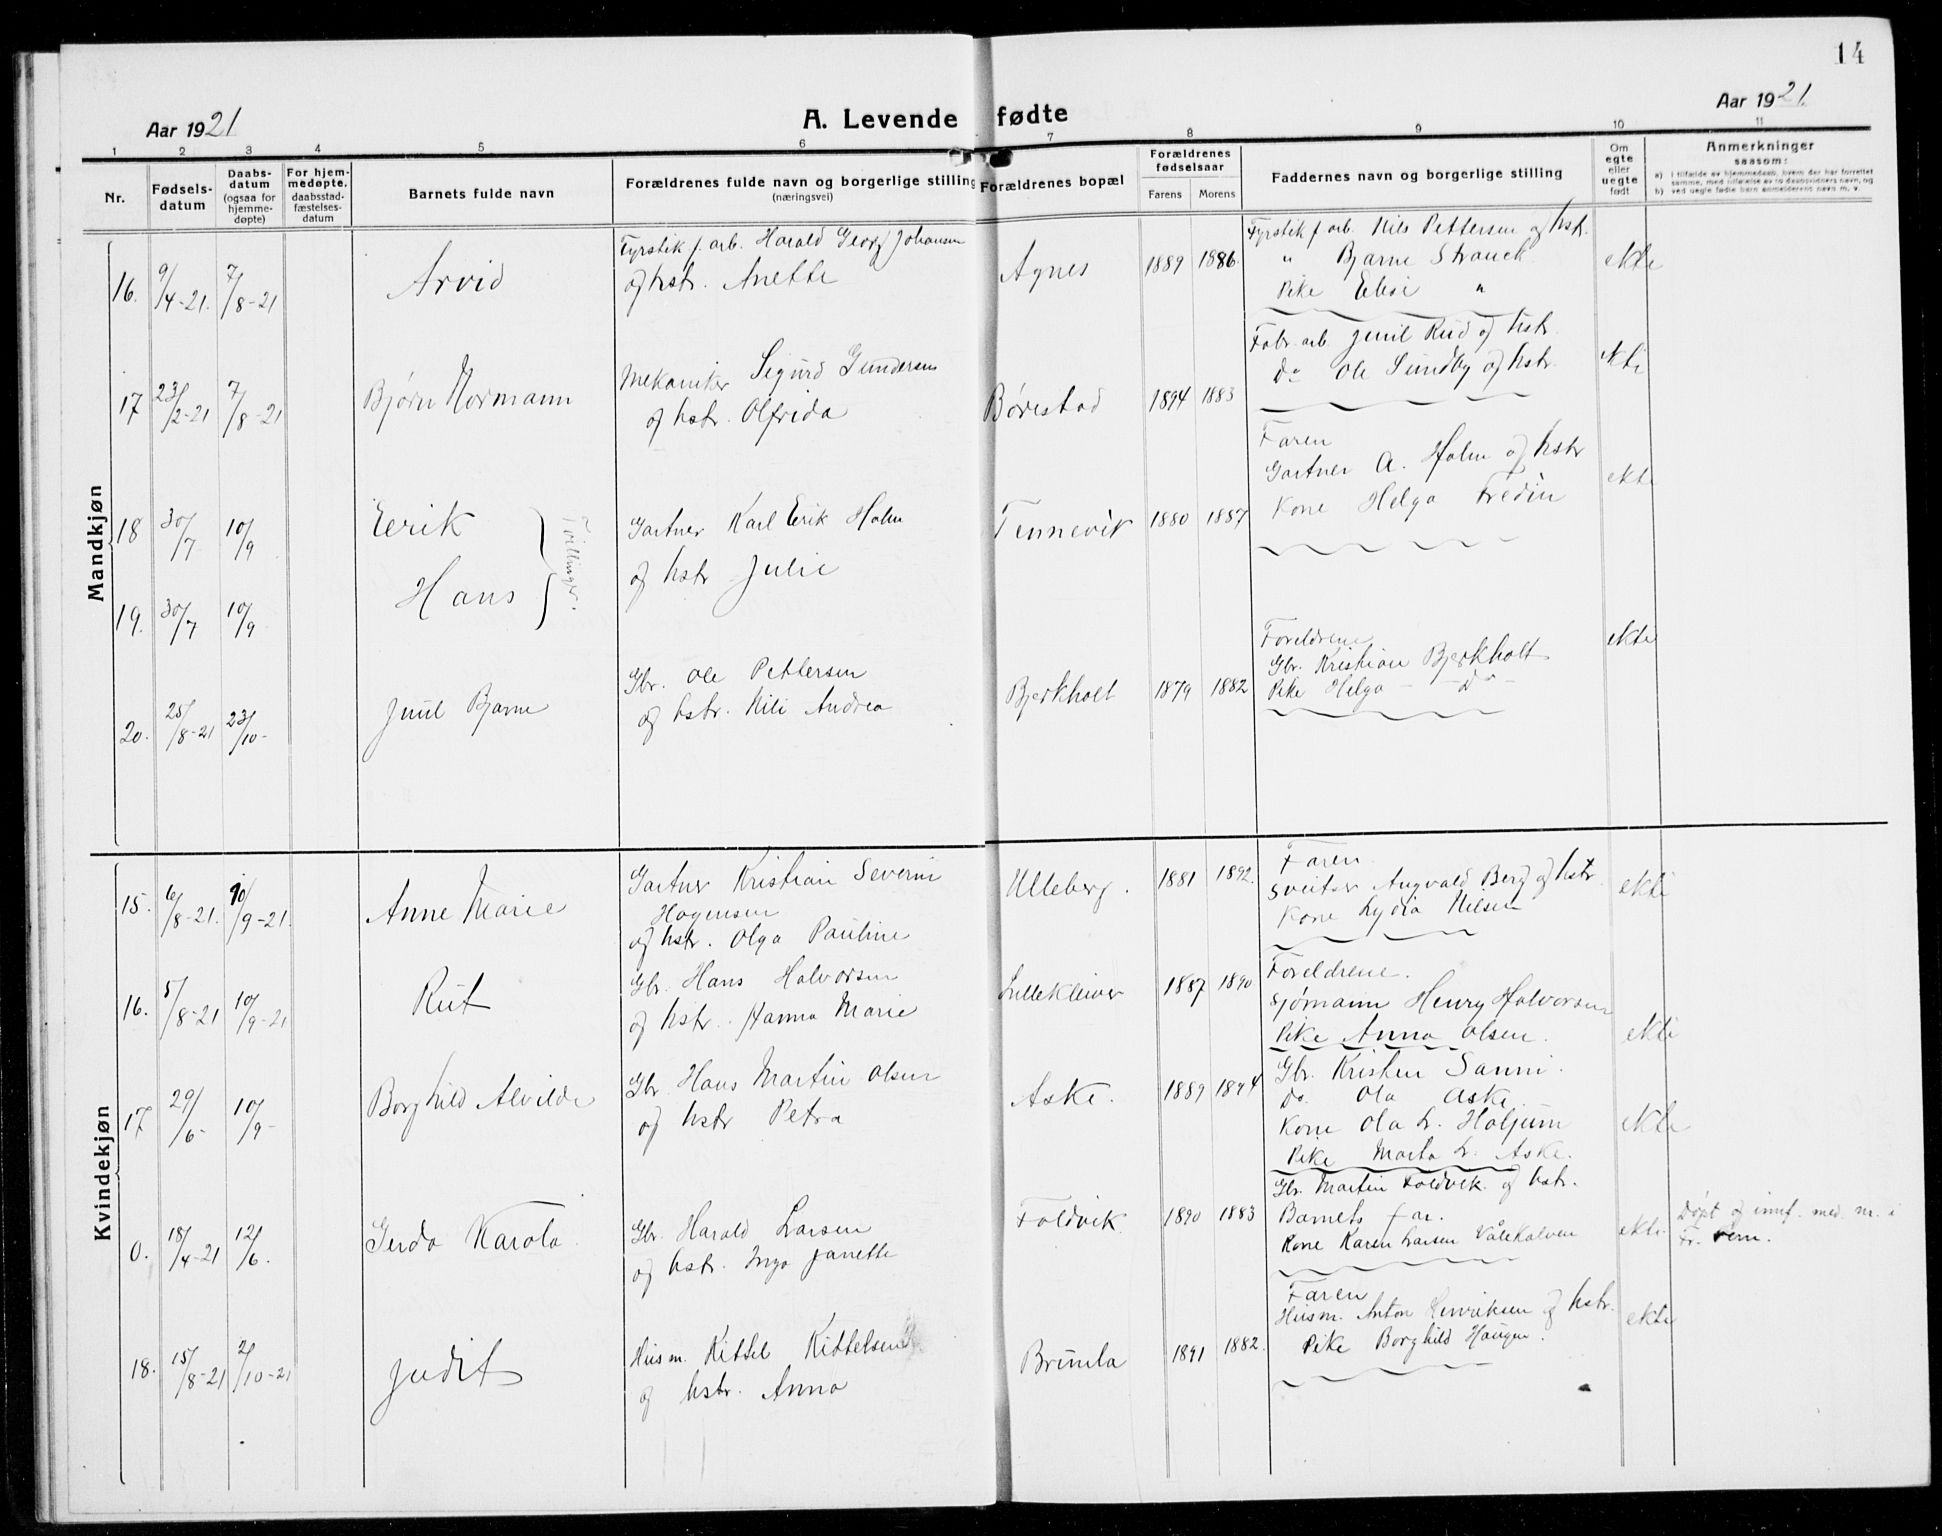 14
Aar 1921
A. Levende fødte
Aar 1921.
1 2 3 4 5 6 7 8 9 10 11
Nr.
Fødsels-
datum
Daabs-
datum
(ogsaa for
hjemme-
døpte)
For hjem-
medøpte,
daabsstad-
fæstelses-
datum
Barnets fulde navn
Forældrenes fulde navn og borgerlige stilling
(næringsvei)
Forældrenes bopæl
Forældrenes
fødselsaar
Farens Morens
Faddernes navn og borgerlige stilling
Om
egte
eller
uegte
født
Anmerkninger
saasom:
a) i tilfælde av hjemmedaab, hvem der har forrettet
samme, med tilføielse av to daabsvidners navn, og
b) ved uegte fødte barn anmelderens navn m. v.
Mandkjøn
16. 9/4-21. 7/8-21 Arvid
Fyrstik f. arb. Harald Georg Johansen
og hstr. Anette
Agnes 1889 1886.
Fyrstik f. arb. Nils Pettersen og hstr.
" Bjarne Strauck
Pike Elise "
ekte
17 23/2-21 7/8-21 Bjørn Normann
Mekaniker Sigurd Gundersen
og hstr. Olfrida
Børestad 1894 1883
Fabr. arb. Juul Rud og hstr.
Do Ole Sundby og hstr.
ekte
18 30/7 10/9 Eerik
Tvillinger.
Gartner Karl Eerik Holm
og hstr Julie
Tennevik 1880 1887
Faren
Gartner A. Holm og hstr
Kone Helga Fredin
ekte
19. 30/7 10/9 Hans
20. 25/8-21 23/10- Juul Bjarne
Gbr. Ole Pettersen
og hstr. Nili Andrea
Bjerkholt 1879 1882
Foreldrene
Gbr. Kristian Bjerkholt
Pike Helga - Do -
ekte
Kvindekjøn
15. 6/8-21. 10/9-21. Anne Marie
Gartner Kristian Severin
Hagensen
og hstr. Olga Pauline
Ulleberg. 1881 1892.
Faren.
Sveitser Angvald Berg og hstr.
Kone Lydia Nilsen
ekte
16. 5/8-21 10/9-21 Rut
Gbr. Hans Halvorsen
og hstr. Hanna Marie
Lillekleiver 1887 1890
Foreldrene.
Sjømann Henry Halvorsen
Pike Anna Olsen.
ekte
17 29/6- 10/9- Borghild Alvilde
Gbr Hans Martin Olsen
og hstr Petra
Aske. 1889 1894
Gbr. Kristen Sanni.
Do. Ola Aske.
Kone Ola L. Haljum
Pike Marta L. Aske.
ekte
0. 18/4-21 12/6. Gerda Karola
Gbr. Harald Larsen
og hstr. Inga Janette
Foldvik 1890 1883
Gbr. Martin Foldvik og hstr.
Barnets far.
Kone Karen Larsen Vålekalven
ekte.
Døpt og innf. med nr. i
Fr. Vern.
18. 15/8-21 2/10-21 Judit
Husm. Kittel Kittelsen
og hstr. Anna
Brunla 1891 1882.
Faren
Husm. Anton Henriksen og hstr.
Pike Borghild Haugen.
ekte